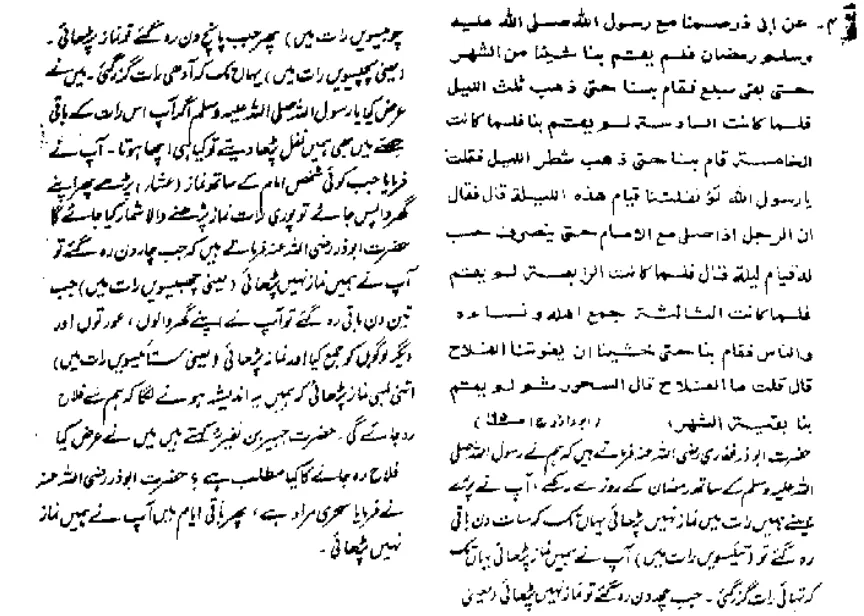 ۴۔ عن ابی ذر صمنا مع رسول اللہ صلی اللہ علیہ
وسلم رمضان فلم یقم بنا شیئا من الشھر
حتی بقی سبع فقام بنا حتی ذھب ثلث اللیل
فلما کانت السادسۃ لم یقم بنا فلما کانت
الخامسۃ قام بنا حتی ذھب شطر اللیل فقلت
یا رسول اللہ لو نفلتنا قیام ھذہ اللیلۃ قال فقال
ان الرجل اذا صلی مع الامام حتی ینصرف حسب
لہ قیام لیلۃ قال فلما کانت الرابعۃ لم یقم
فلما کانت الثالثۃ جمع اھلہ و نساءہ
والناس فقام بنا حتی خشینا ان یفوتنا الفلاح
قال قلت ما الفلاح قال السحور ثم لم یقم
بنا بقیۃ الشھر۔ (ابوداؤد ج۱ ص۱۹۵)
حضرت ابوذر غفاری رضی اللہ عنہ فرماتے ہیں کہ ہم نے رسول اللہ صلی
اللہ علیہ وسلم کے ساتھ رمضان کے روزے رکھے، آپ نے پورے
مہینے ہمیں رات میں نماز نہیں پڑھائی یہاں تک کہ سات دن باقی
رہ گئے تو (تیئسویں رات میں) آپ نے ہمیں نماز پڑھائی یہاں تک
کہ تہائی رات گزر گئی۔ جب چھ دن رہ گئے تو نماز نہیں پڑھائی (یعنی
چوبیسویں رات میں) پھر جب پانچ دن رہ گئے تو نماز پڑھائی۔
(یعنی پچیسویں رات میں) یہاں تک کہ آدھی رات گزر گئی۔ میں نے
عرض کیا یا رسول اللہ صلی اللہ علیہ وسلم اگر آپ اس رات کے باقی
حصے میں بھی ہمیں نفل پڑھا دیتے تو کیا ہی اچھا ہوتا۔ آپ نے
فرمایا جب کوئی شخص امام کے ساتھ نماز (عشاء) پڑھے پھر اپنے
گھر واپس جائے تو پوری رات نماز پڑھنے والا شمار کیا جائے گا
حضرت ابوذر رضی اللہ عنہ فرماتے ہیں کہ جب چار دن رہ گئے تو
آپ نے ہمیں نماز نہیں پڑھائی (یعنی چھبیسویں رات میں) جب
تین دن باقی رہ گئے تو آپ نے اپنے گھر والوں، عورتوں اور
دیگر لوگوں کو جمع کیا اور نماز پڑھائی (یعنی ستائیسویں رات میں)
اتنی لمبی نماز پڑھائی کہ ہمیں یہ اندیشہ ہونے لگا کہ ہم سے فلاح
رہ جائے گی۔ حضرت جبیر بن نفیرؒ کہتے ہیں میں نے عرض کیا
فلاح رہ جانے کا کیا مطلب ہے؟ حضرت ابوذر رضی اللہ عنہ
نے فرمایا سحری مراد ہے، پھر باقی ایام میں آپ نے ہمیں نماز
نہیں پڑھائی۔